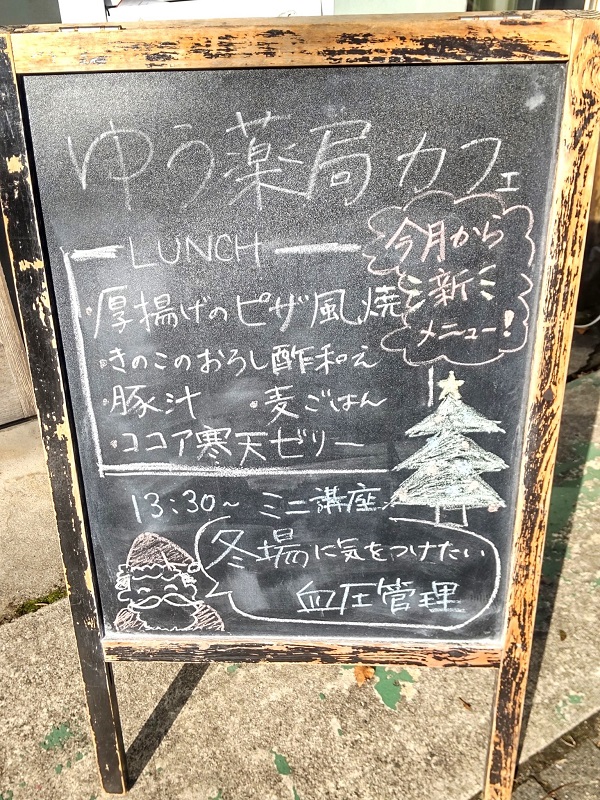 ゆう薬局カフェ
LUNCH
今月から
新
メニュー!
・厚揚げのピザ風焼
・きのこのおろし酢和え
・豚汁 ・麦ごはん
・ココア寒天ゼリー
13:30~ ミニ講座
冬場に気をつけたい
血圧管理